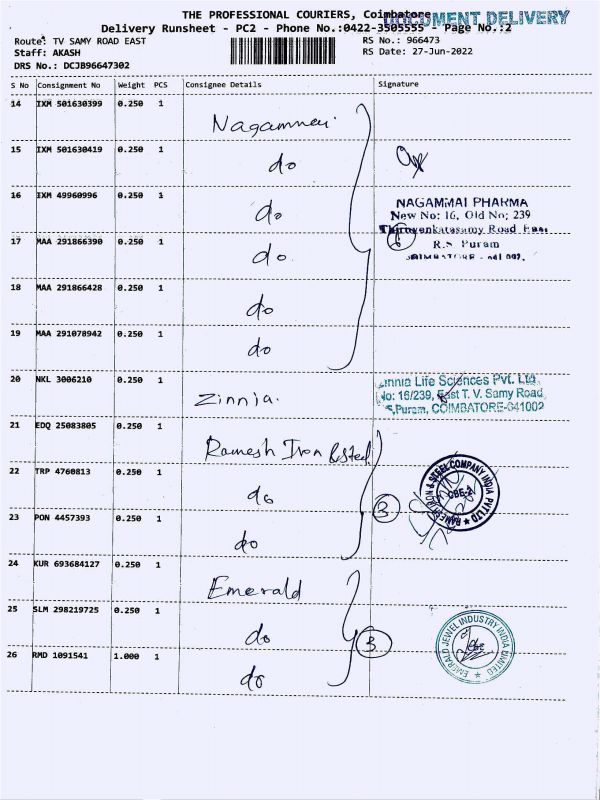 THE PROFESSIONAL COURIERS, Coimbatore
DOCUMENT DELIVERY
Delivery Runsheet - PC2 - Phone No.:0422-3505555 - Page No.:2
Route: TV SAMY ROAD EAST
RS No.: 966473
Staff: AKASH
RS Date: 27-Jun-2022
DRS No.: DCJB96647302
S No Consignment No Weight PCS Consignee Details Signature
14 IXM 501630399 0.250 1 Nagammai
15 IXM 501630419 0.250 1 do
16 IXM 49960996 0.250 1 do
NAGAMMAI PHARMA
New No: 16, Old No; 239
Thiruvenkatasamy Road East
17 MAA 291866390 0.250 1 do
R.S Puram
COIMBATORE - 641 002.
18 MAA 291866428 0.250 1 do
19 MAA 291078942 0.250 1 do
20 NKL 3006210 0.250 1 Zinnia.
Zinnia Life Sciences Pvt. Ltd.
No: 16/239, East T. V. Samy Road
R.S.Puram, COIMBATORE-641002
21 EDQ 25083805 0.250 1 Ramesh Iron & Steel
22 TRP 4760813 0.250 1 do
RAMESH IRON & STEEL COMPANY INDIA PVT LTD
CBE-2
3
23 PON 4457393 0.250 1 do
24 KUR 693684127 0.250 1 Emerald
25 SLM 298219725 0.250 1 do
3
EMERALD JEWEL INDUSTRY INDIA LIMITED
26 RMD 1091541 1.000 1 do